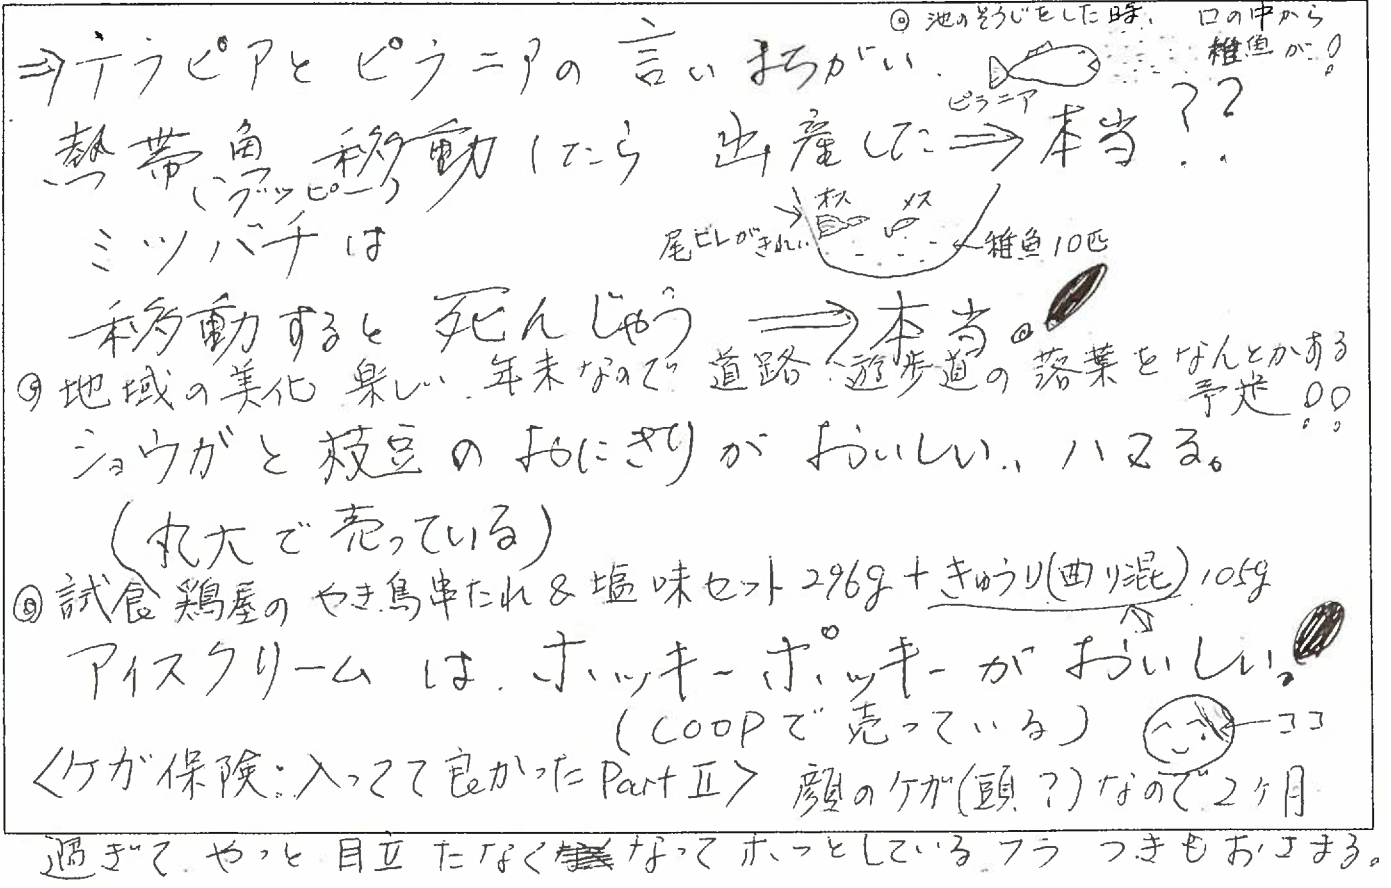 ◎池のそうじをした時、口の中から
稚魚が!
⇒テラピアとピラニアの言いまちがい.
ピラニア
熱帯魚 移動したら 出産した⇒本当??
(グッピー)
オス メス
ミツバチは
尾ビレがきれい
稚魚10匹
移動すると死んじゃう ⇒本当。
◎地域の美化 楽しい. 年末なので道路・遊歩道の落葉をなんとかする
予定!!
ショウガと枝豆のおにぎりがおいしい、ハマる。
(丸大で売っている)
◎試食 鶏屋のやき鳥串たれ&塩味セット296g+きゅうり(曲り混)105g
アイスクリームは.ホッキーポッキーがおいしい。
(COOPで売っている)
ココ
<ケガ保険:入ってて良かったPartⅡ> 顔のケガ(頭?)なので2ヶ月
過ぎて やっと目立たなくなってホッとしているフラつきもおさまる。